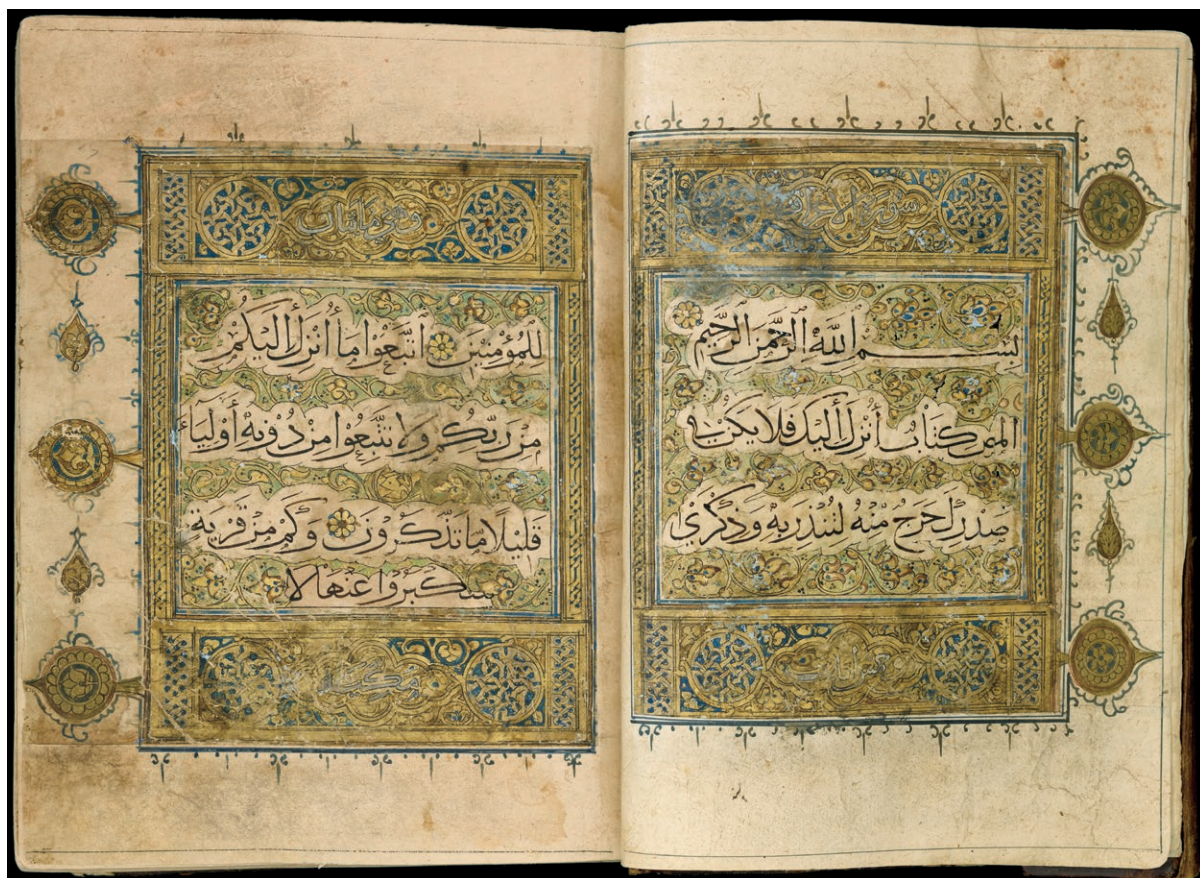 سورة
بِسْمِ اللَّهِ الرَّحْمَنِ الرَّحِيمِ
المص كِتَابٌ أُنْزِلَ إِلَيْكَ فَلَا يَكُنْ فِي
صَدْرِكَ حَرَجٌ مِنْهُ لِتُنْذِرَ بِهِ وَذِكْرَى
لِلْمُؤْمِنِينَ اتَّبِعُوا مَا أُنْزِلَ إِلَيْكُمْ
مِنْ رَبِّكُمْ وَلَا تَتَّبِعُوا مِنْ دُونِهِ أَوْلِيَاءَ
قَلِيلًا مَا تَذَكَّرُونَ وَكَمْ مِنْ قَرْيَةٍ
ستكبروا عنها لا